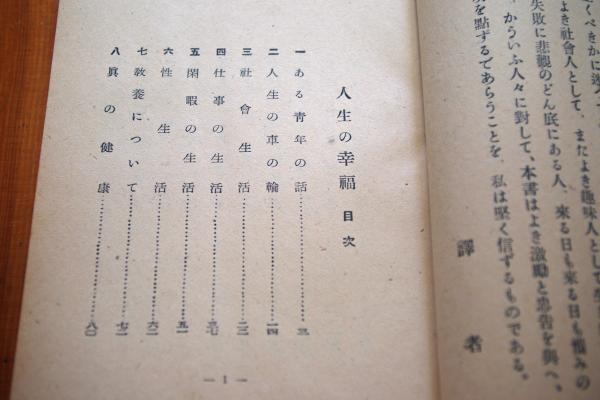 くべきかに迷
よき社會人として、またよき趣味人として生
失敗に悲觀のどん底にある人、來る日も來る日も惱みの
かういふ人々に對して、本書はよき激勵と忠告を與へ、
を點ずるであらうことを、私は堅く信ずるものである。
譯者
人生の幸福 目次
一 ある青年の話……三
二 人生の車の輪……一四
三 社會生活……二二
四 仕事の生活……三七
五 閑暇の生活……五一
六 性生活……六二
七 教養について……七二
八 眞の健康……八〇
— 1 —